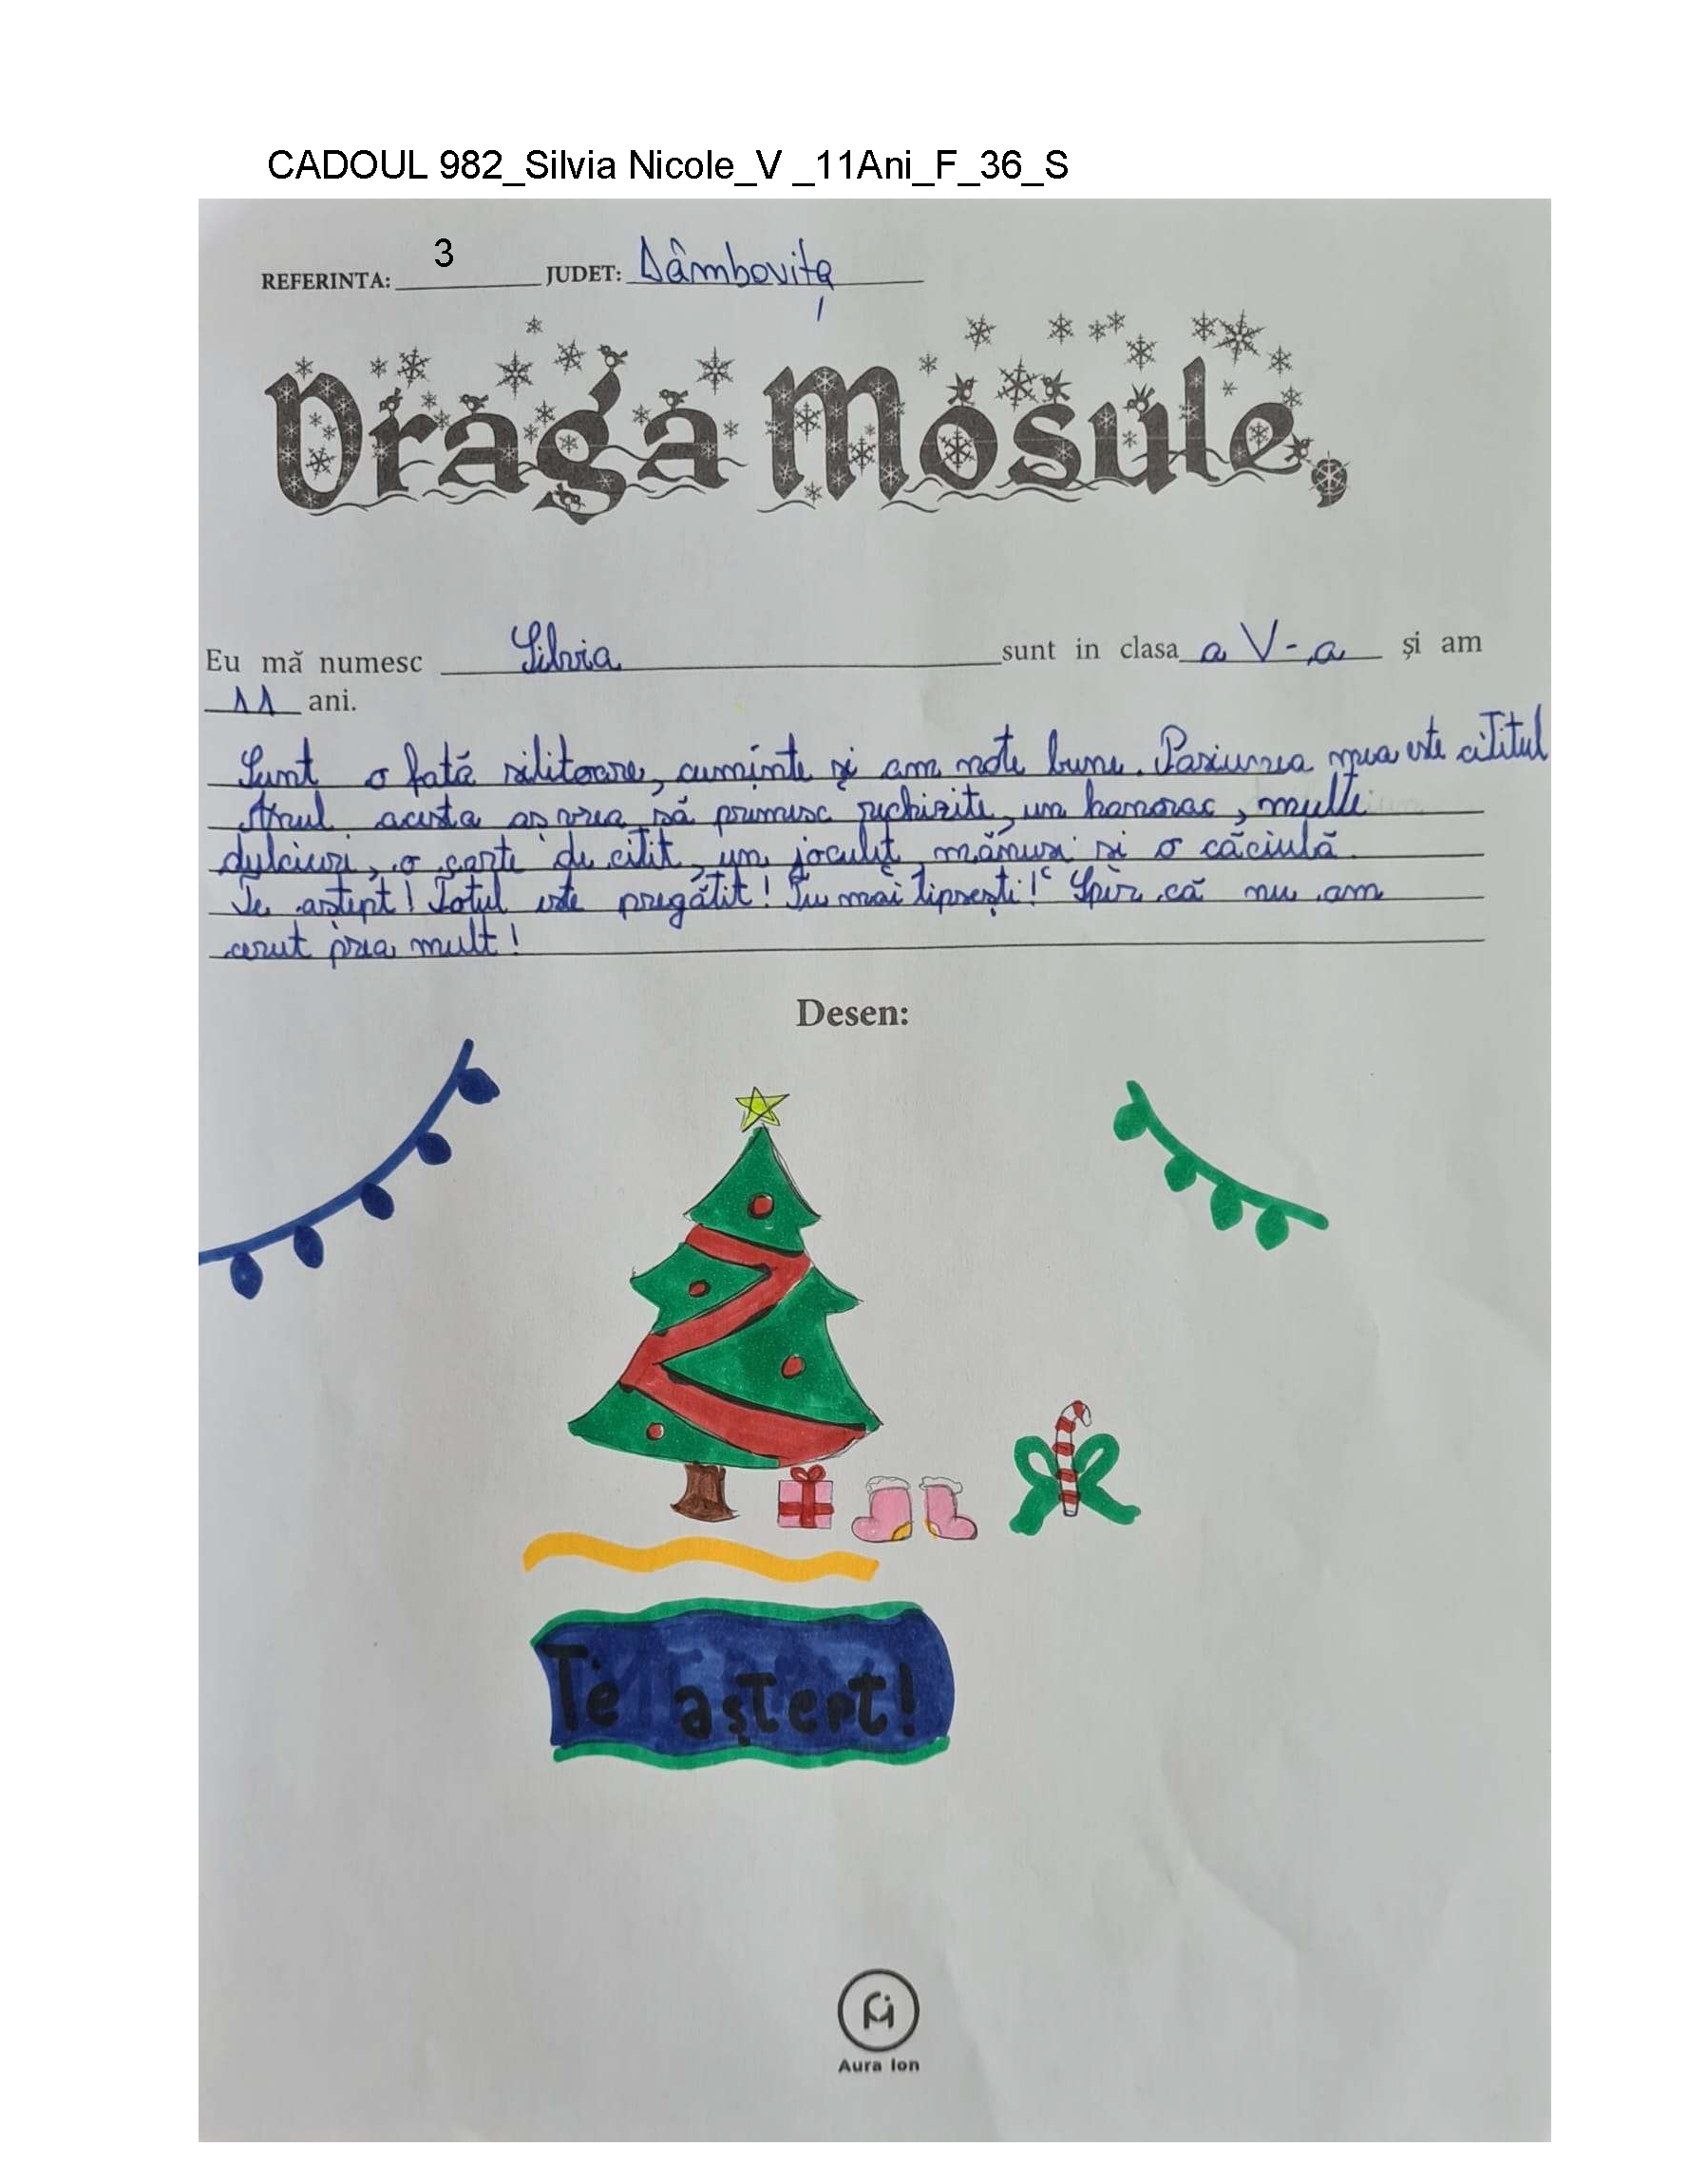 CADOUL 982_Silvia Nicole_V _11Ani_F_36_S
REFERINTA: 3 JUDET: Dâmbovița
Draga Mosule,
Eu mă numesc Silvia sunt in clasa a V-a și am
11 ani.
Sunt o fată silitoare, cuminte și am note bune. Pasiunea mea este cititul
Anul acesta aș vrea să primesc rechizite, un hanorac, multe
dulciuri, o carte de citit, un joculeț, mănuși si o căciulă.
Te aștept! Totul este pregătit! Tu mai lipsești! Sper că nu am
cerut prea mult!
Desen:
Te aștept!
Aura Ion